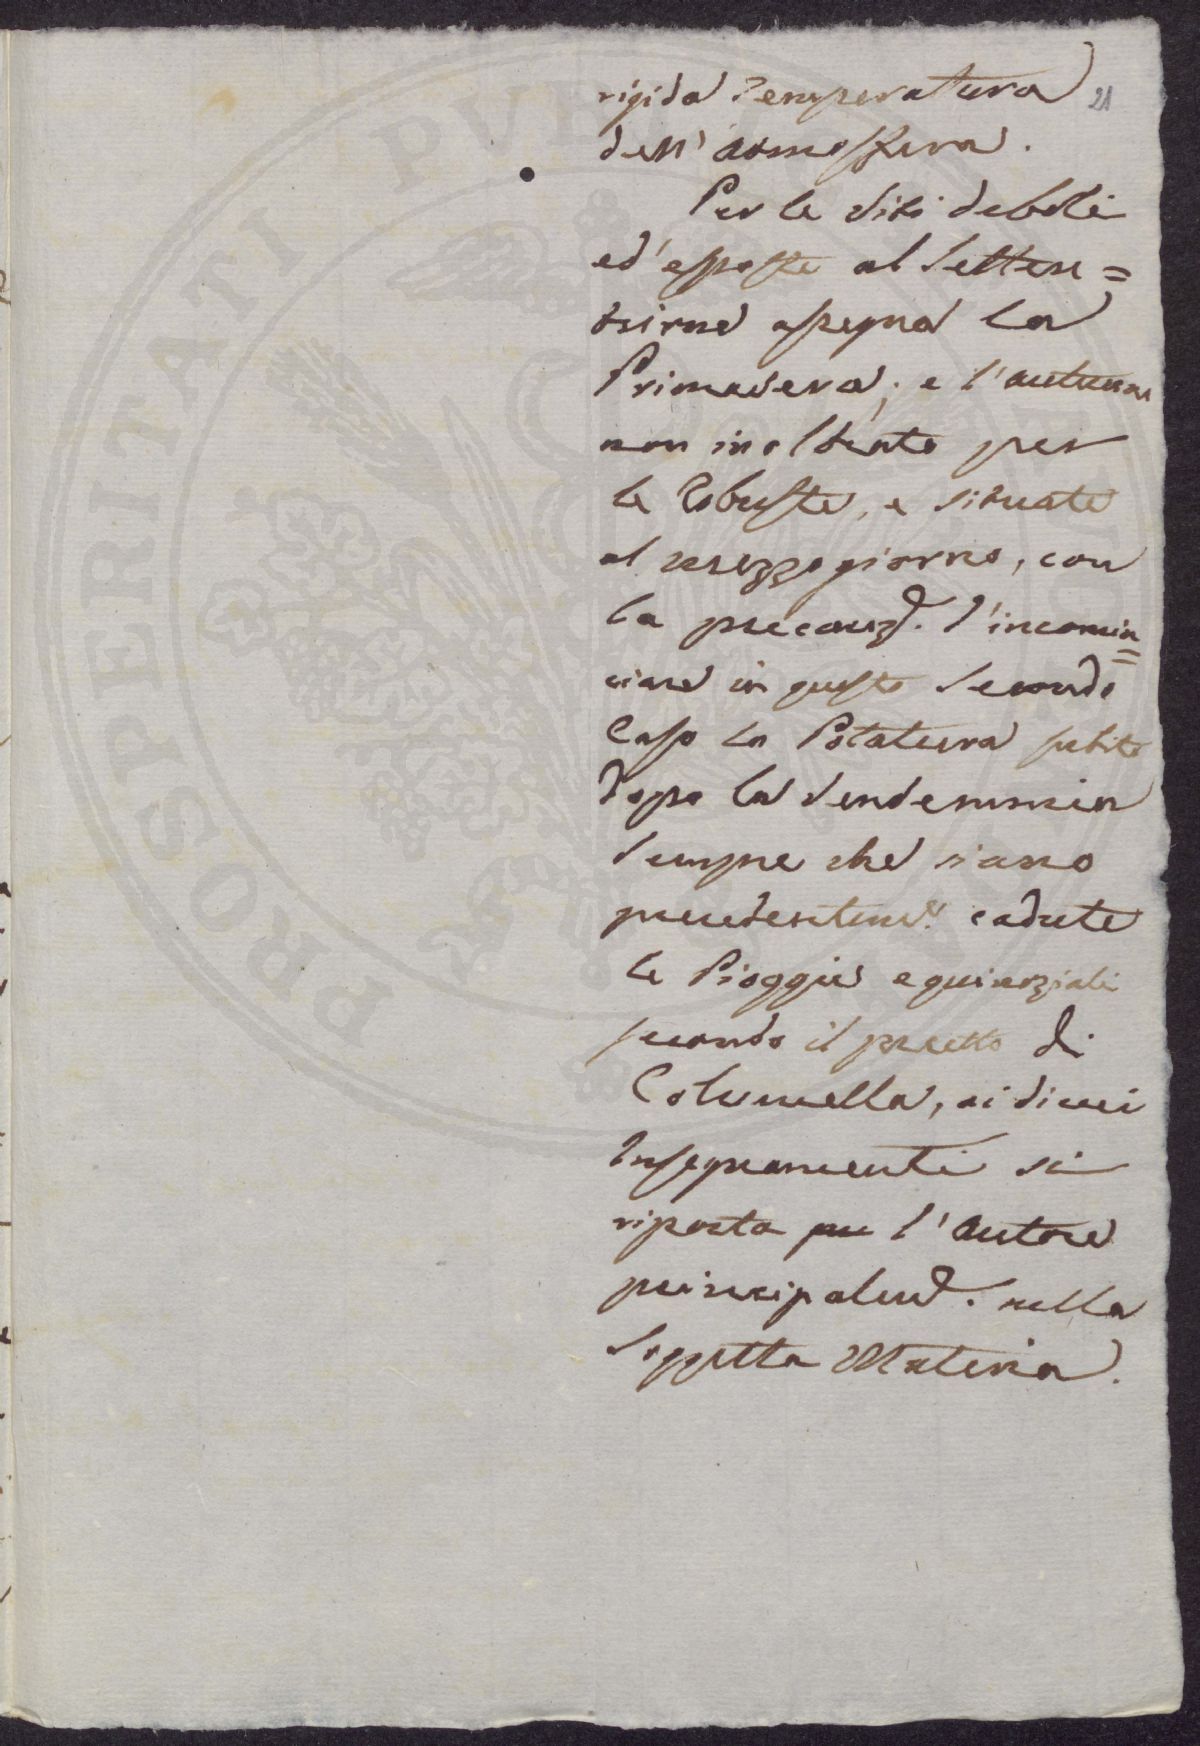 rigida Temperatura 21
dell' Atmosfera.
Per le Viti deboli
ed' esposte al Setten=
trione assegna la
Primavera; e l'autunno
non inoltrato per
le Robuste, e situate
al mezzogiorno, con
la precauz.e d'incomin
=
ciare in questo secondo
Caso la Potatura subito
dopo la Vendemmia
Sempre che siano
precedentem.e cadute
le Pioggie equinoziali
secondo il precetto di
Columella, ai di cui
Insegnamenti si
riporta l'Autore
principalm.e nella
Soggetta Materia.
PROSPERITATI PVBLICAE